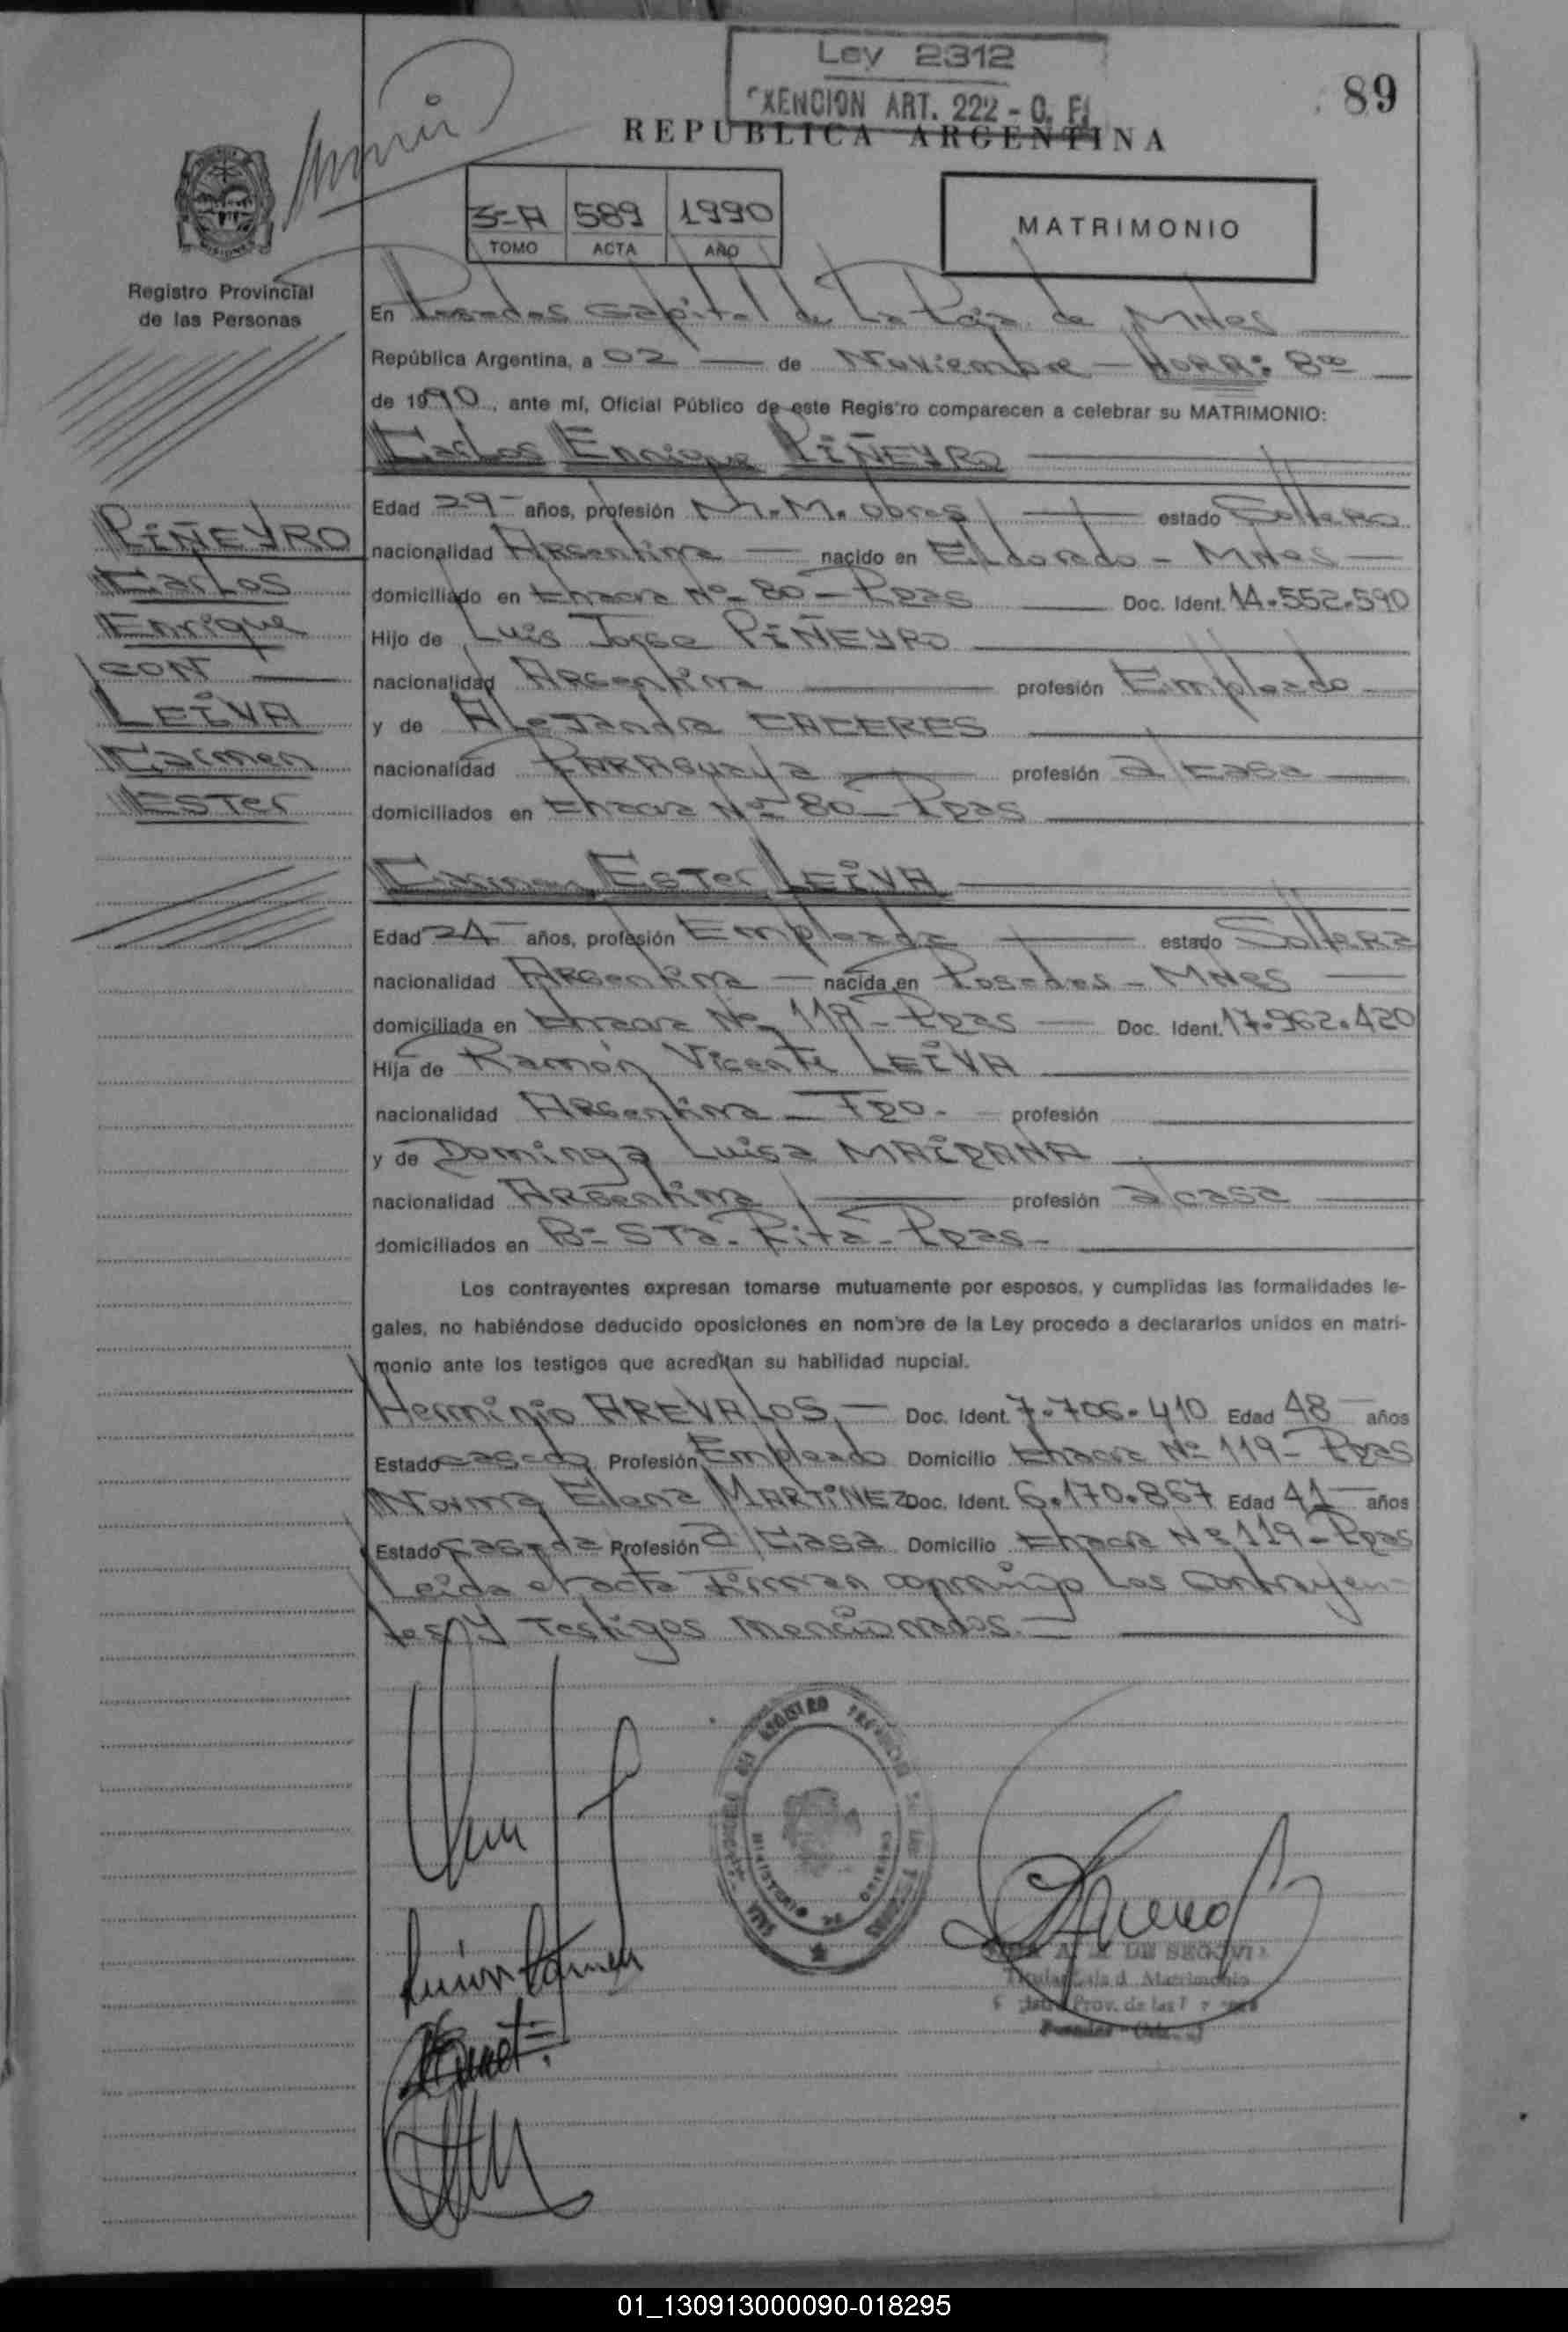 Ley 2312
EXENCION ART. 222 - C. F.
89
REPUBLICA ARGENTINA
3-A 589 1990
TOMO ACTA AÑO
MATRIMONIO
Registro Provincial
de las Personas
En Posadas Capital de La Pcia. de Mnes
República Argentina, a 02 de Noviembre - HORA: 8oo
de 1990, ante mí, Oficial Público de este Registro comparecen a celebrar su MATRIMONIO:
Carlos Enrique PIÑEYRO
PIÑEYRO
Carlos
Enrique
CON
LEIVA
Carmen
ESTer
Edad 29 años, profesión M.M. obras estado Soltero
nacionalidad Argentina nacido en Eldorado - Mnes
domiciliado en Chacra Nº 80 - Ppas Doc. Ident. 14.552.590
Hijo de Luis Jorge PIÑEYRO
nacionalidad Argentina profesión Empleado
y de Alejandra CACERES
nacionalidad Paraguaya profesión a/casa
domiciliados en Chacra Nº 80 - Ppas
Carmen Ester LEIVA
Edad 24 años, profesión Empleada estado Soltera
nacionalidad Argentina nacida en Posadas - Mnes
domiciliada en Chacra Nº 119 - Ppas Doc. Ident. 17.962.420
Hija de Ramón Vicente LEIVA
nacionalidad Argentina - Fdo. profesión
y de Dominga Luisa MAIDANA
nacionalidad Argentina profesión a/casa
domiciliados en Bº Sta. Rita - Ppas -
Los contrayentes expresan tomarse mutuamente por esposos, y cumplidas las formalidades le-
gales, no habiéndose deducido oposiciones en nombre de la Ley procedo a declararlos unidos en matri-
monio ante los testigos que acreditan su habilidad nupcial.
Herminio AREVALOS Doc. Ident. 7.706.410 Edad 48 años
Estado casado Profesión Empleado Domicilio Chacra Nº 119 - Ppas
Norma Elena MARTINEZ Doc. Ident. 6.170.867 Edad 41 años
Estado casada Profesión a/Casa Domicilio Chacra Nº 119 - Ppas
Leida el acta Firman conmigo los contrayen-
tes y Testigos mencionados.
DE SEGOVIA
Titular Sala d. Matrimonio
Prov. de las
Posadas
01_130913000090-018295